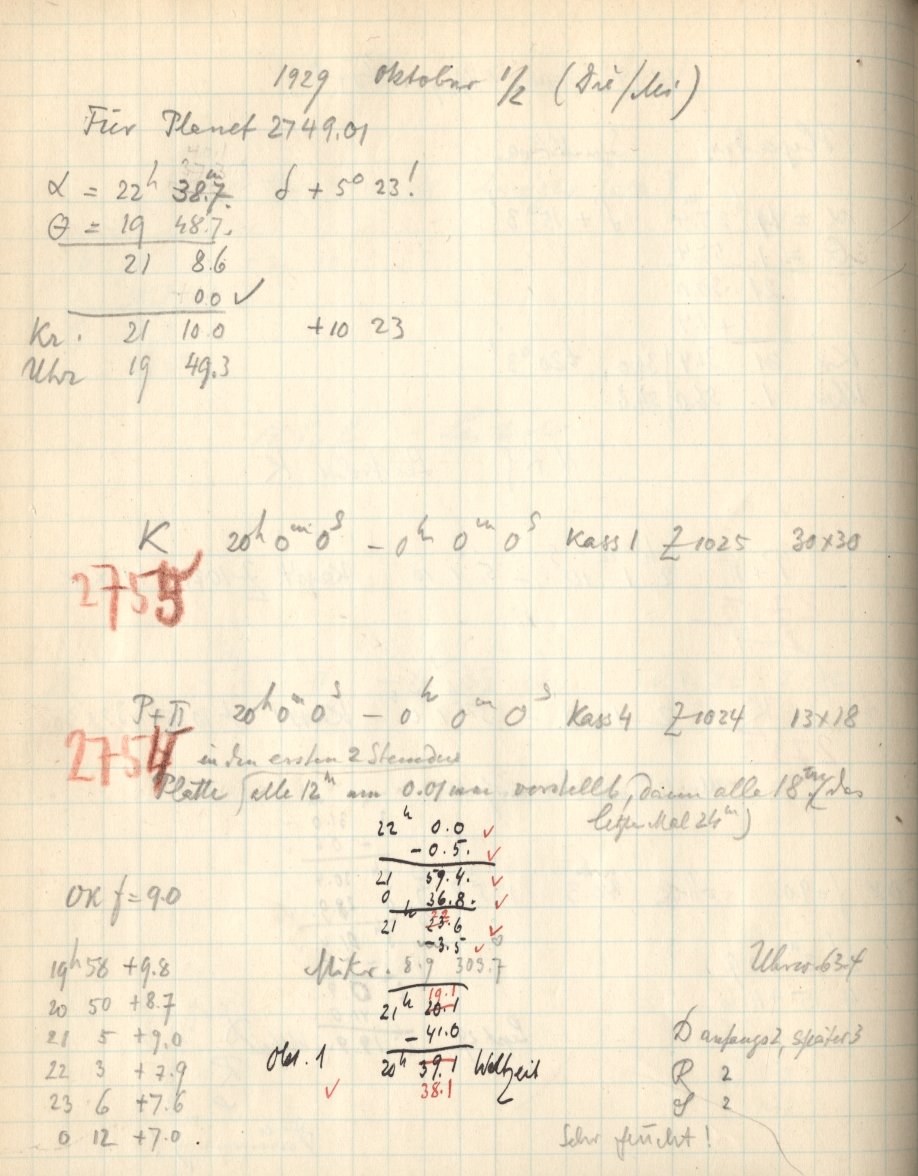 1929 Oktober 1/2 (Die/Mi)
Für Planet 2749.01
α = 22h 38.7m δ + 5° 23!
θ = 19 48.7.
21 8.6
0.0 ✓
Kr. 21 10.0 +10 23
Uhr 19 49.3
K 20h 0m 0s – 0h 0m 0s Kass 1 Z 1025 30×30
2755
P+π 20h 0m 0s – 0h 0m 0s Kass 4 Z 1024 13×18
2754 in den ersten 2 Stunden
Platte alle 12m um 0.01mm verstellt, dann alle 18m (das
letzte Mal 24m)
22h 0.0 ✓
–0.5. ✓
21 59.4. ✓
0 36.8. ✓
OK f = 9.0
21h 23.6 ✓
22
–3.5 ✓
Mikr. 8.9 303.7
Uhrw. 63.4
19h 58 +9.8
20 50 +8.7
21 5 +9.0
22 3 +7.9
23 6 +7.6
0 12 +7.0.
19.1
21h 20.1
–41.0
Obs. 1 20h 39.1 Weltzeit
✓ 38.1
D anfangs 2, später 3
R 2
S 2
Sehr feucht!